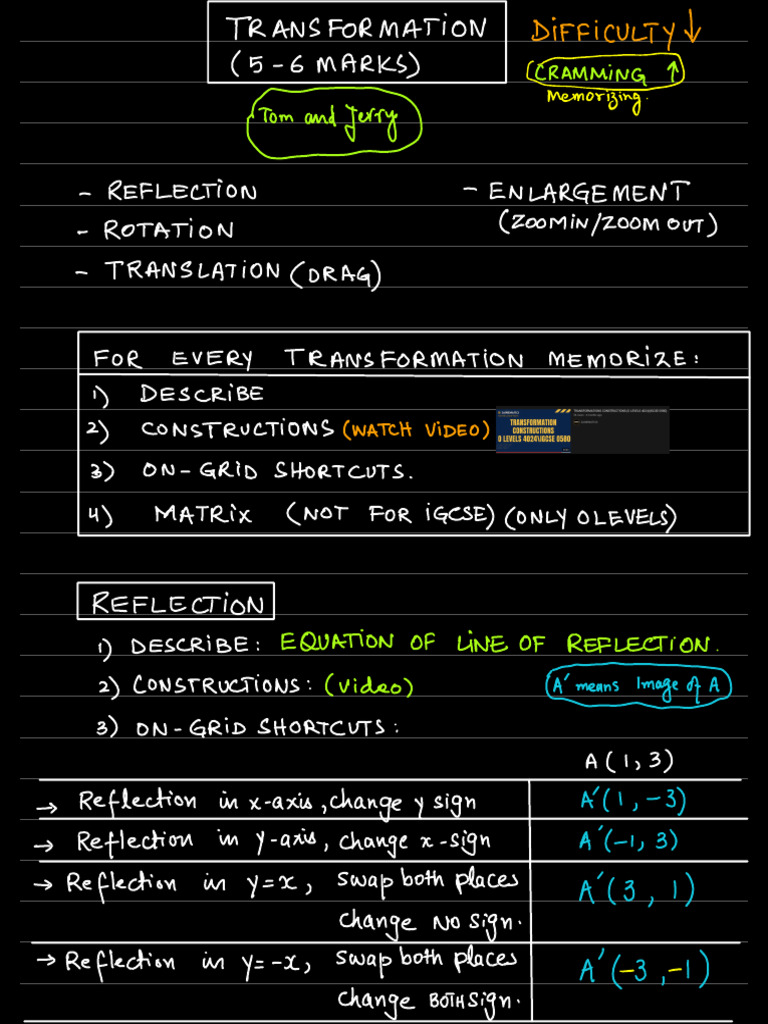 TRANSFORMATION
(5-6 MARKS)
DIFFICULTY ↓
CRAMMING ↑
Memorizing.
Tom and Jerry
- REFLECTION
- ROTATION
- TRANSLATION (DRAG)
- ENLARGEMENT
(ZOOMIN/ZOOM OUT)
FOR EVERY TRANSFORMATION MEMORIZE:
1) DESCRIBE
2) CONSTRUCTIONS (WATCH VIDEO)
TRANSFORMATION
CONSTRUCTIONS
O LEVELS 4024\IGCSE 0580
3) ON-GRID SHORTCUTS.
4) MATRIX (NOT FOR IGCSE) (ONLY OLEVELS)
REFLECTION
1) DESCRIBE: EQUATION OF LINE OF REFLECTION.
2) CONSTRUCTIONS: (video)
A' means Image of A
3) ON-GRID SHORTCUTS:
A (1, 3)
→ Reflection in x-axis, change y sign A'(1, -3)
→ Reflection in y-axis, change x-sign A'(-1, 3)
→ Reflection in y=x, swap both places A'(3, 1)
change NO sign.
→ Reflection in y=-x, swap both places A'(-3, -1)
change BOTH sign.